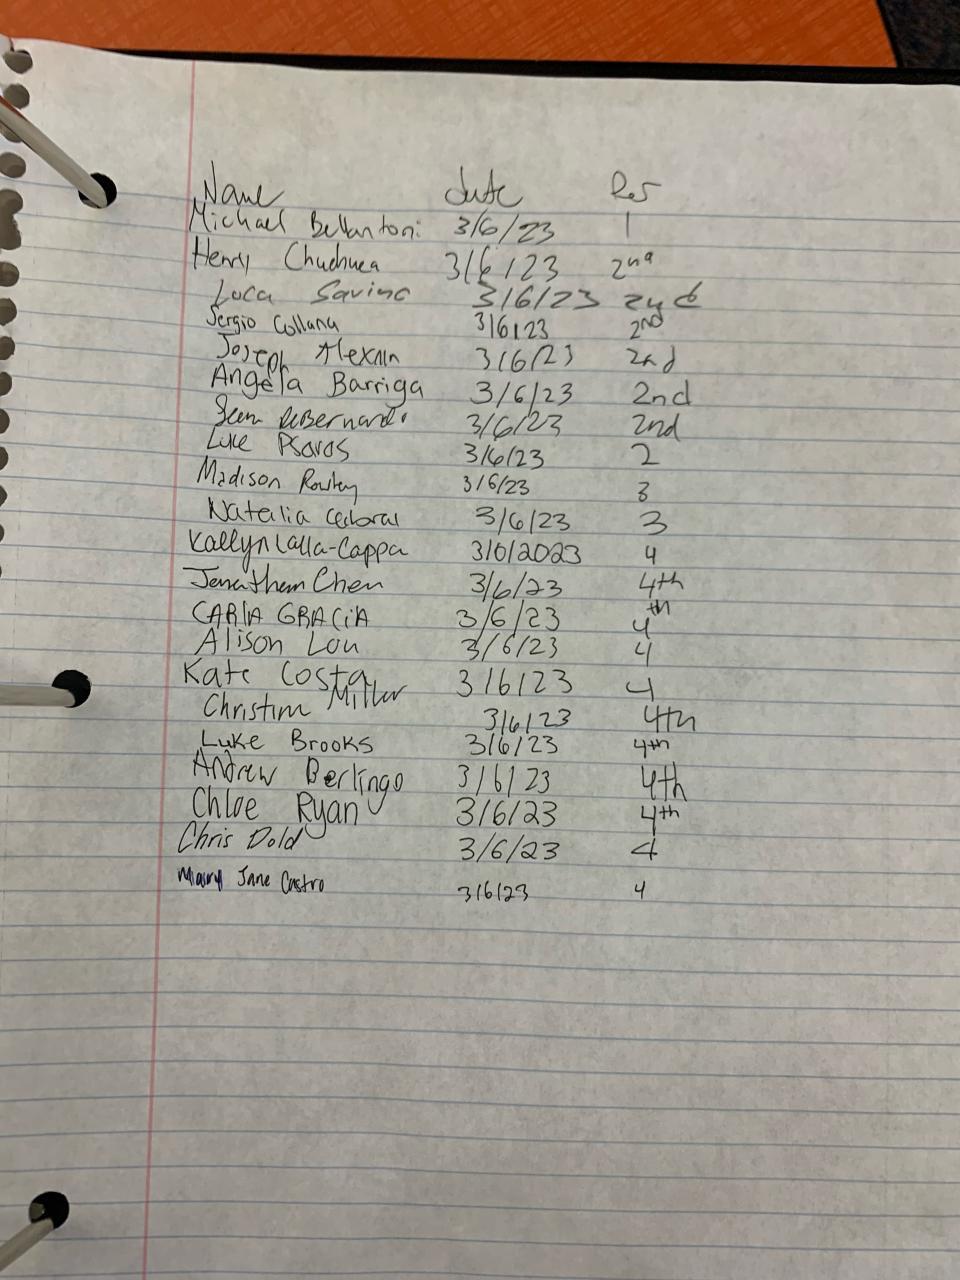 Name date Per
Michael Bellantoni 3/6/23 1
Henry Chuchuca 3/6/23 2nd
Luca Savino 3/6/23 2nd
Sergio Collana 3/6/23 2nd
Joseph 3/6/23 2nd
Angela Barriga 3/6/23 2nd
Sean DeBernardo 3/6/23 2nd
Luke Psaros 3/6/23 2
Madison 3/6/23 3
Natalia 3/6/23 3
Kaelyn Lalla-Cappa 3/6/2023 4
Jonathan Chen 3/6/23 4th
CARIA GRACiA 3/6/23 4th
Alison Lou 3/6/23 4
Kate Costa 3/6/23 4
Christina Miller 3/6/23 4th
Luke Brooks 3/6/23 4th
Andrew Berlingo 3/6/23 4th
Chloe Ryan 3/6/23 4th
Chris Dold 3/6/23 4
Mary Jane Castro 3/6/23 4